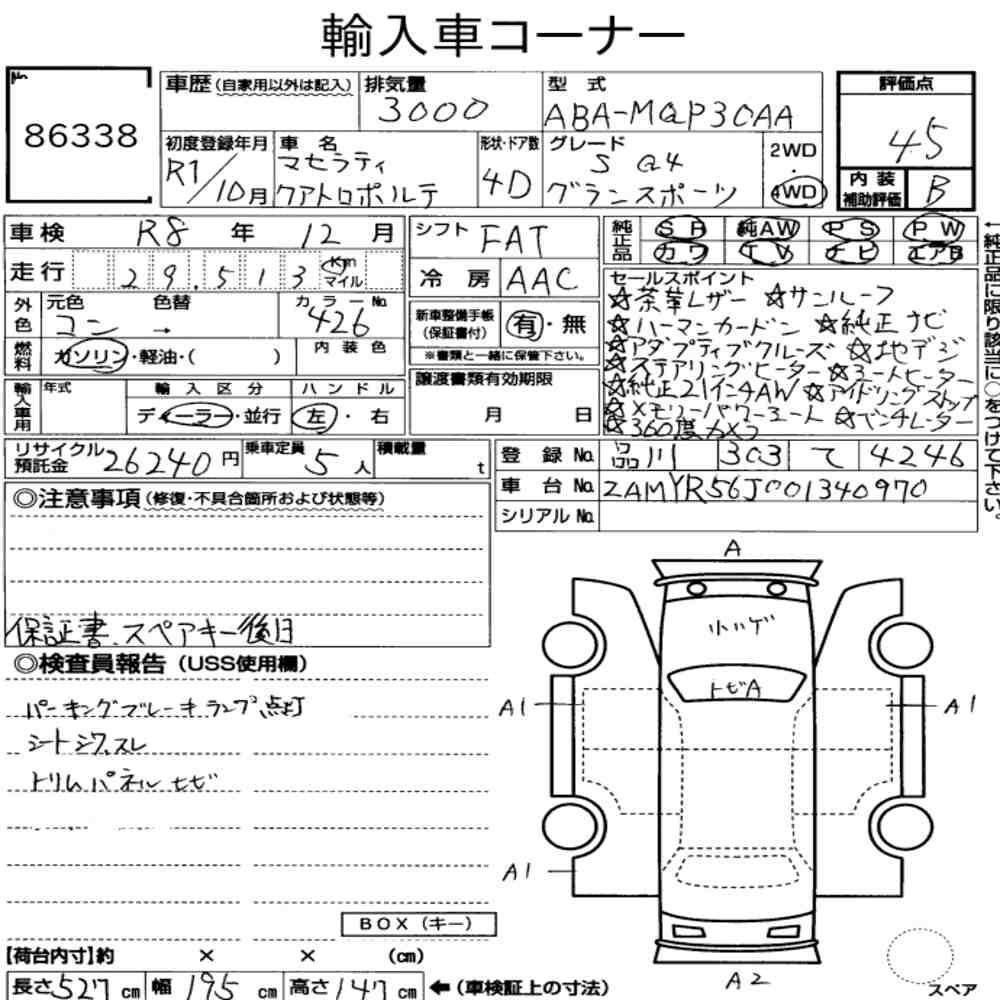 輸入車コーナー
No.
86338
車歴(自家用以外は記入)
排気量
3000
型式
ABA-MQP30AA
評価点
4.5
初度登録年月
R1/10月
車名
マセラティ
クアトロポルテ
形状・ドア数
4D
グレード
S Q4
グランスポーツ
2WD
・
4WD
内装
補助評価
B
車検 R8年 12月
走行 29,513 Km
マイル
外色
元色 色替
コン →
カラーNo.
426
燃料
ガソリン・軽油・( )
内装色
輸入車用
年式
輸入区分
ディーラー・並行
ハンドル
左・右
シフト FAT
冷房 AAC
新車整備手帳
(保証書付)
有・無
※書類と一緒に保管下さい。
譲渡書類有効期限
月 日
純正品
SR 純AW PS PW
カワ TV ナビ エアB
←純正品に限り該当に○をつけて下さい。
セールスポイント
☆茶革レザー ☆サンルーフ
☆ハーマンカードン ☆純正ナビ
☆アダプティブクルーズ ☆地デジ
☆ステアリングヒーター ☆シートヒーター
☆純正21インチAW ☆アイドリングストップ
☆メモリーパワーシート ☆ベンチレーター
☆360度カメラ
リサイクル
預託金
26240円
乗車定員
5人
積載量
t
登録No. 品川 303 て 4246
車台No. ZAMYR56J001340970
シリアルNo.
◎注意事項(修復・不具合箇所および状態等)
保証書、スペアキー後日
◎検査員報告(USS使用欄)
パーキングブレーキランプ点灯
シートシワ、スレ
トリムパネルヒビ
BOX(キー)
A
小ハゲ
トビA
A1
A1
A1
A2
スペア
【荷台内寸】約 × × (cm)
長さ527cm 幅195cm 高さ147cm ←(車検証上の寸法)